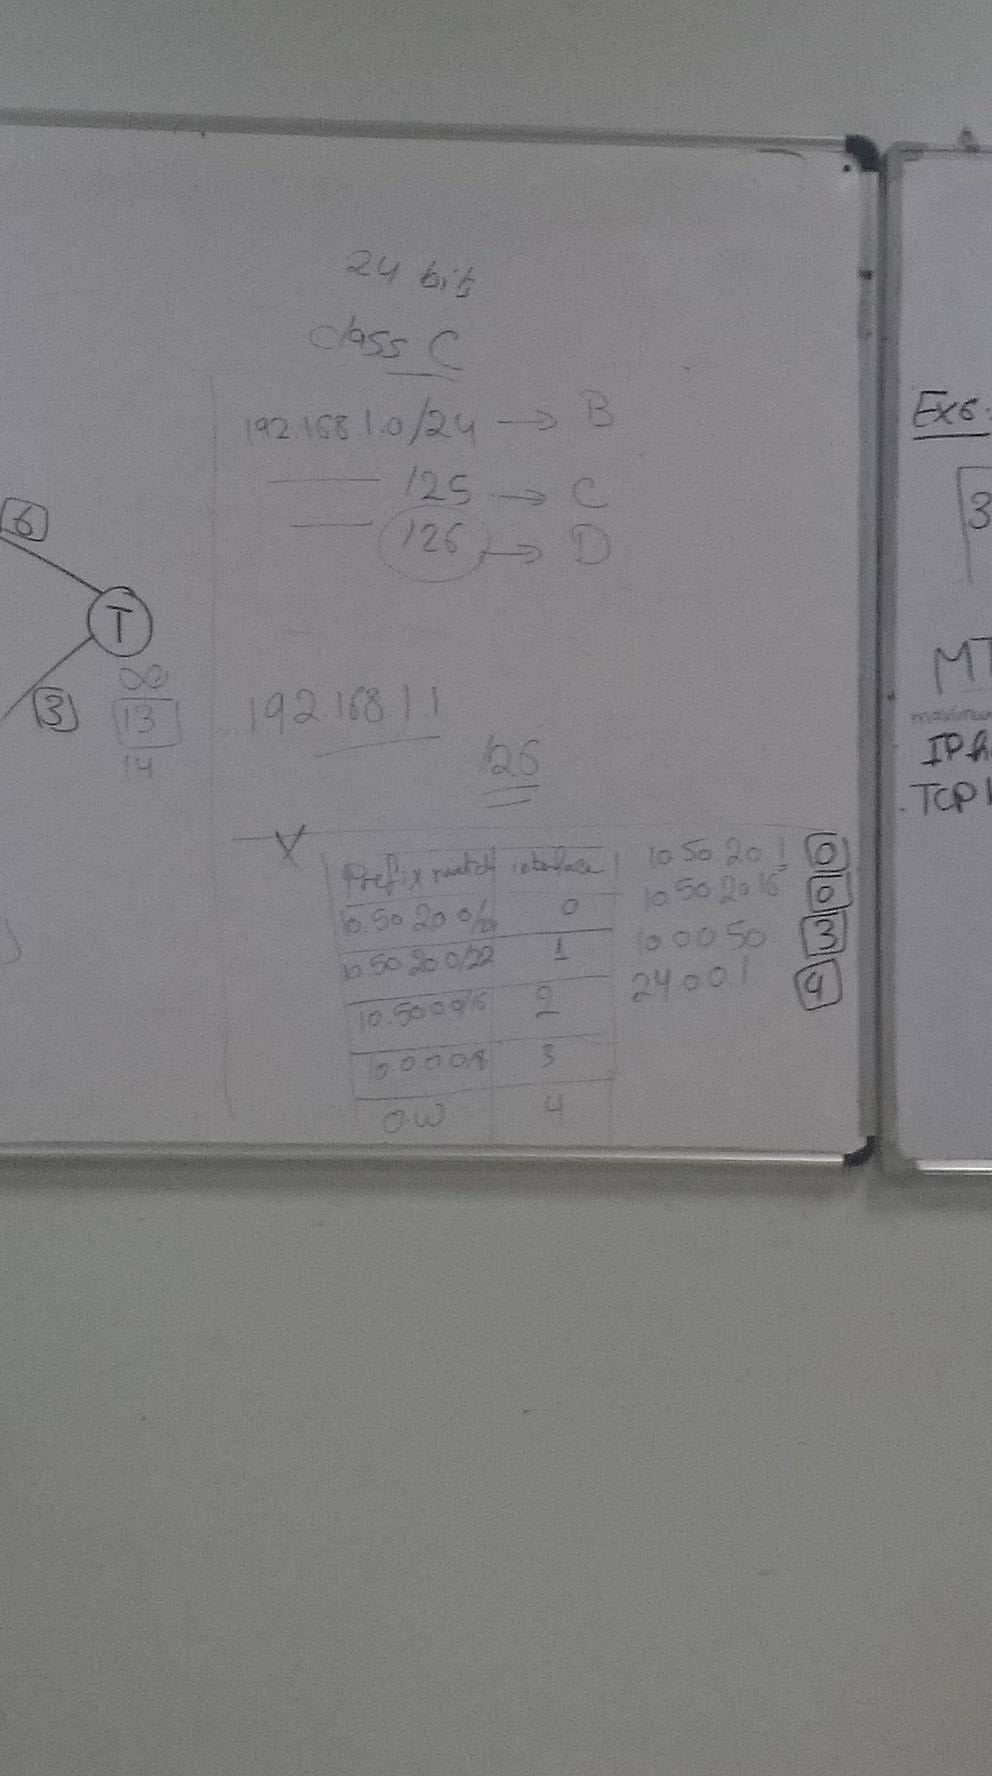 24 bits
class C
192.168.1.0/24 → B
125 → C
126 → D
6
T
3
∞
13
14
192.168.1.1
126
Prefix match interface
10.50.20.0/24 0
10.50.20.0/22 1
10.50.0.0/16 2
10.0.0.0/8 3
O.W 4
10.50.20.1 0
10.50.20.16 0
10.0.0.50 3
24.0.0.1 4
Ex6:
3
MT
IP
TCP